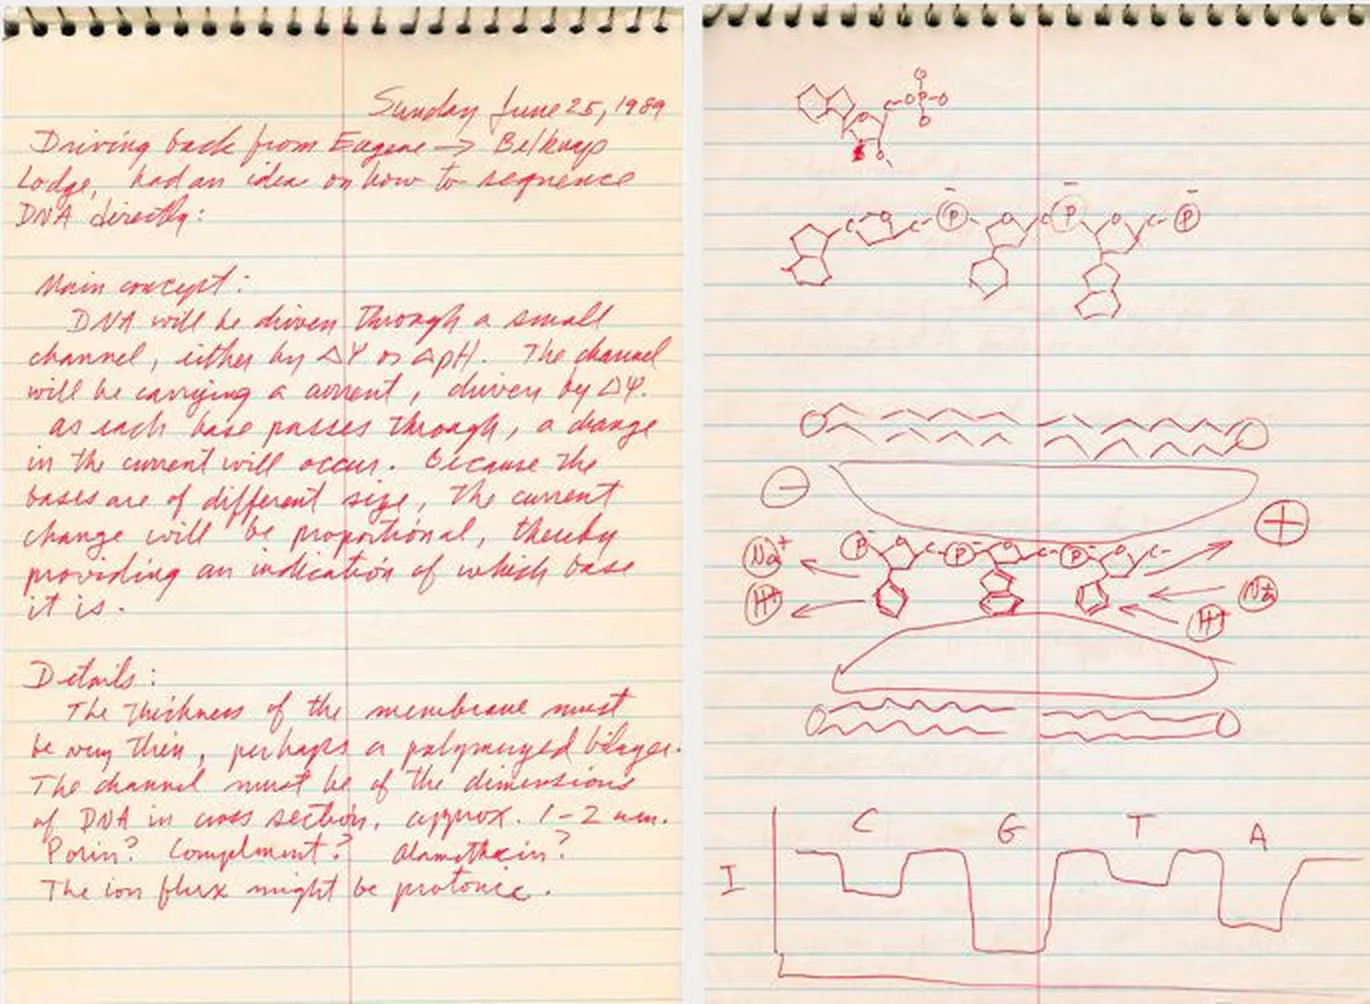 Sunday June 25, 1989
Driving back from Eugene → Belknap
Lodge, had an idea on how to sequence
DNA directly:
Main concept:
DNA will be driven through a small
channel, either by ΔΨ or ΔpH. The channel
will be carrying a current, driven by ΔΨ.
as each base passes through, a change
in the current will occur. Because the
bases are of different size, the current
change will be proportional, thereby
providing an indication of which base
it is.
Details:
The thickness of the membrane must
be very thin, perhaps a polymerized bilayer.
The channel must be of the dimensions
of DNA in cross section, approx. 1-2 nm.
Porin? Compliment? Alamethicin?
The ion flux might be protonic.
O
C-O-P-O
O
O
O
C O C - P - O C P - O C - P -
-
+
P - O C - P - O C - P - O C -
Na+
H+
Na+
H+
C G T A
I